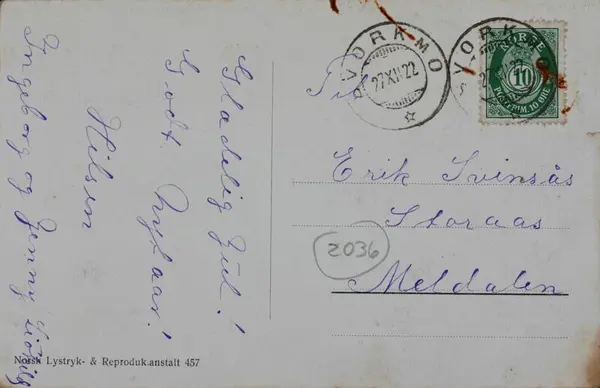 Gladelig Jul!
Godt Nytaar!
Hilsen
Ingeborg og Jenny
Til
Erik Svinsås
Storaas
Meldalen
2036
SVORKMO
27 XII 22
SVORKMO
NORGE
10
POSTFRIM. 10 ØRE
Norsk Lystryk- & Reproduk.anstalt 457